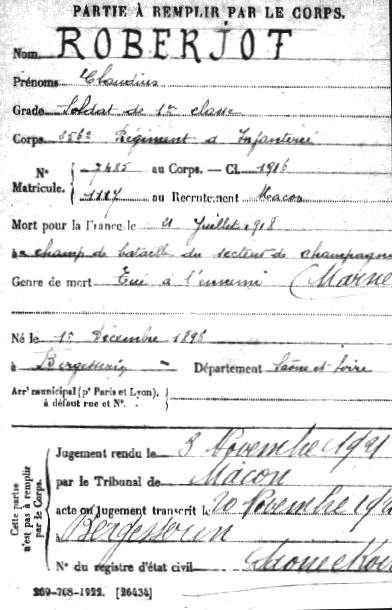 PARTIE À REMPLIR PAR LE CORPS.
Nom ROBERJOT
Prénoms Claudius
Grade Soldat de 1re classe
Corps 356e Régiment d'Infanterie
N° Matricule. { 7485 au Corps. — Cl. 1916
1117 au Recrutement Macon
Mort pour la France le 21 Juillet 1918
à champ de bataille du secteur de champagne
(Marne
Genre de mort Tué à l'ennemi
Né le 1er Décembre 1896
à Bergesserin — Département Saône et Loire
Arrt municipal (pr Paris et Lyon),
à défaut rue et N°.
Cette partie n'est pas à remplir par le Corps.
Jugement rendu le 3 Novembre 1921
par le Tribunal de Mâcon
acte ou jugement transcrit le 20 Novembre 192
à Bergesserin
Saône et Loire
N° du registre d'état civil
269-708-1922. [26434]